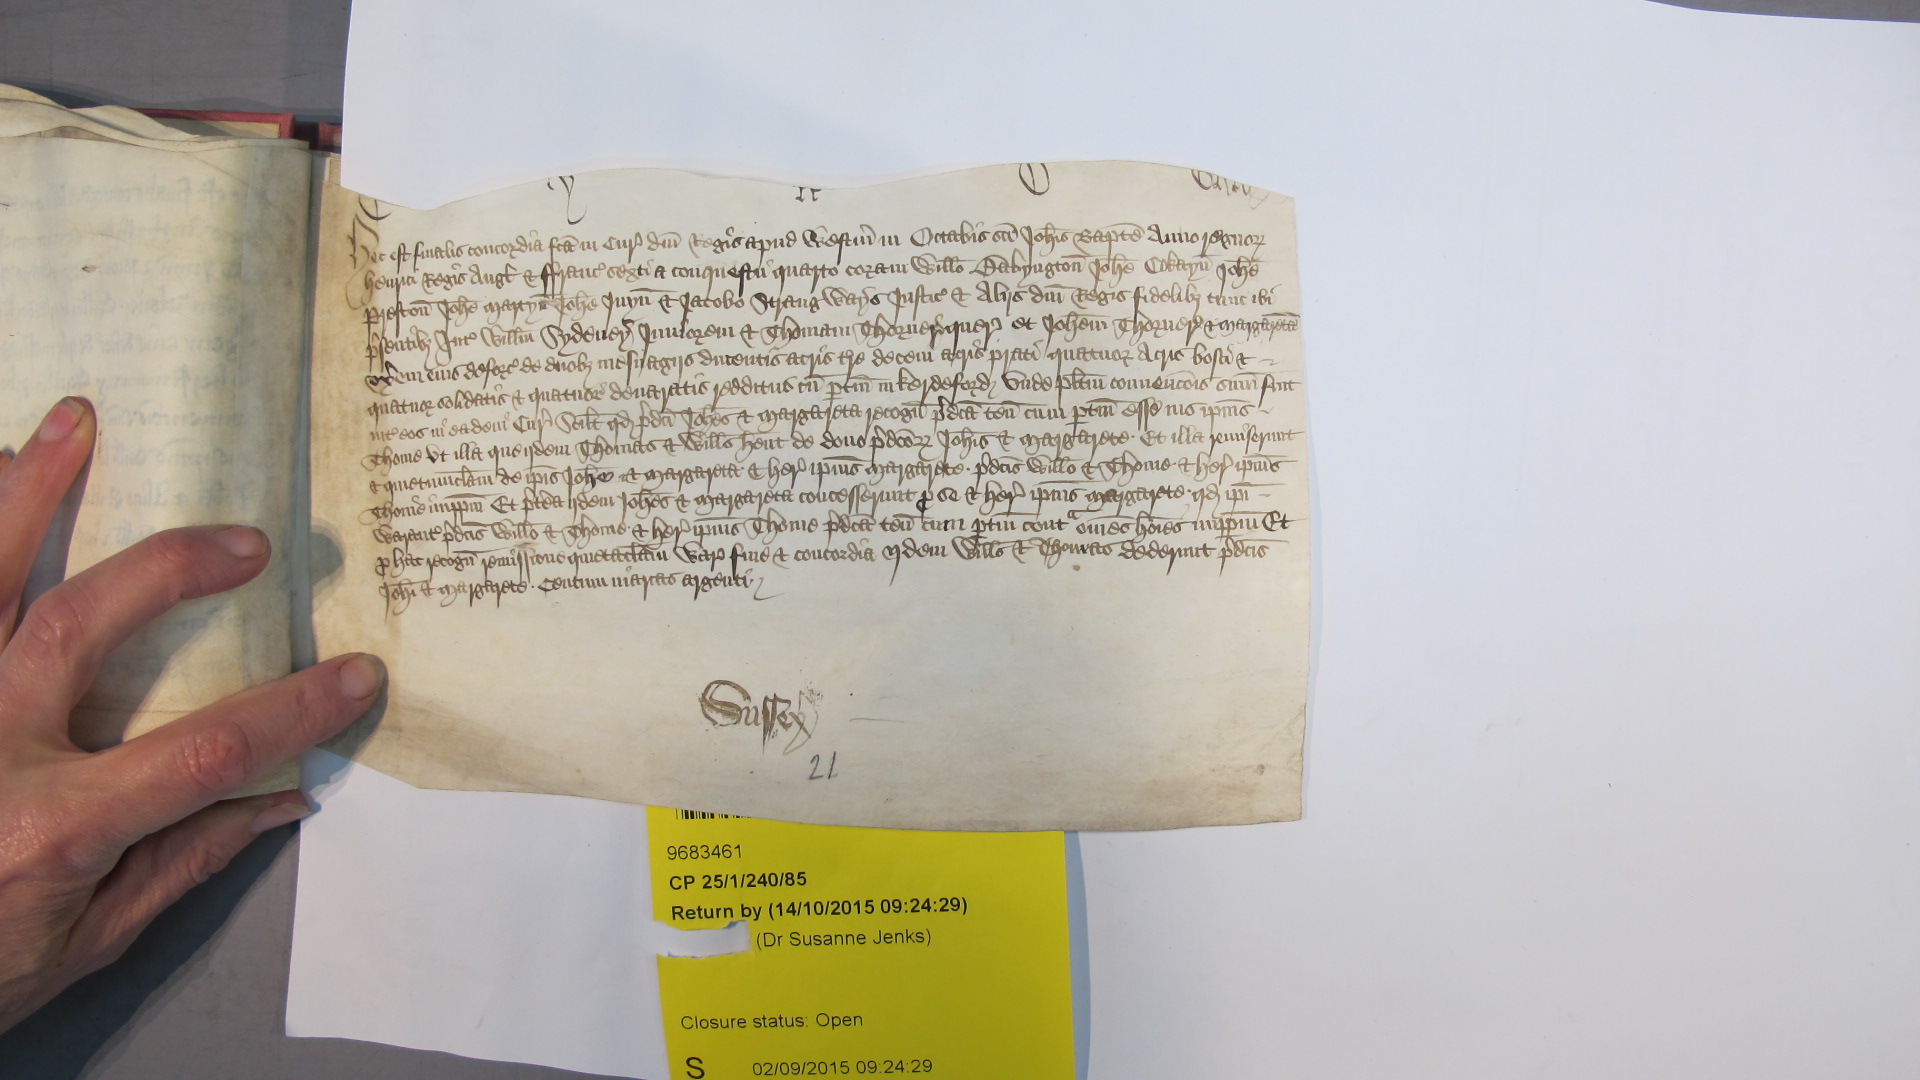 Hec est finalis concordia fc̄a in Cur̉ dn̄i Regis apud Westm̄ in Octabis sc̄i Joh̄is Bapt̄e Anno regnoꝝ
Henrici Regis Angl̉ & Franc̉ sexti a conquestu quarto coram Will̄o Babyngton̄ Joh̄e Cokayn̄ Joh̄e
Preston̄ Joh̄e Martyn̄ Joh̄e Juyn̄ & Jacobo Strangways Justic̉ & Alijs dn̄i Regis fidelibꝫ tunc ibi
p̄sentibꝫ Int̉ Will̄m Sydeney Juniorem & Thomam Thorner̉ quer̉ et Joh̄em Thorner̉ & Margaretā
ux̉em eius deforc̉ de duobꝫ mesuagijs ducentis acris t̉re decem acris prati quatuor Acris bosci &
quatuor solidatis & quatuor denaratis redditus cū ptin̄ in kerdeford Unde pl̄itm convenc̄ois sum̄ fuit
int̉ eos in eadem Cur̉ Scil̄t qđ p̄dc̄i Joh̄es & Margareta recogn̄ p̄dc̄a ten̄ cum ptin̄ esse ius ip̄ius
Thome ut illa que ijdem Thomas & Will̄s h̄ent de dono p̄dc̄oꝝ Joh̄is & Margarete. Et illa remiserunt
& quietumclam̄ de ip̄is Joh̄e & Margareta & her̉ ip̄ius Margarete. p̄dc̄is Will̄o & Thome & her̉ ip̄ius
Thome imppm̄ Et p̄t̉ea ijdem Joh̄es & Margareta concesserunt ꝓ se & her̉ ip̄ius Margarete qđ ip̄i
Warant̉ p̄dc̄is Will̄o & Thome & her̉ ip̄ius Thome p̄dc̄a ten̄ cum ptin̄ contᵃ om̄es hōies imppm̄ Et
ꝓ hac recogn̄ remissione quietaclam̄ War̉ fine & concordia ijdem Will̄s & Thomas dederunt p̄dc̄is
Joh̄i & Margarete. Centum marcas argenti.
Sussex
21
9683461
CP 25/1/240/85
Return by (14/10/2015 09:24:29)
(Dr Susanne Jenks)
Closure status: Open
S 02/09/2015 09:24:29